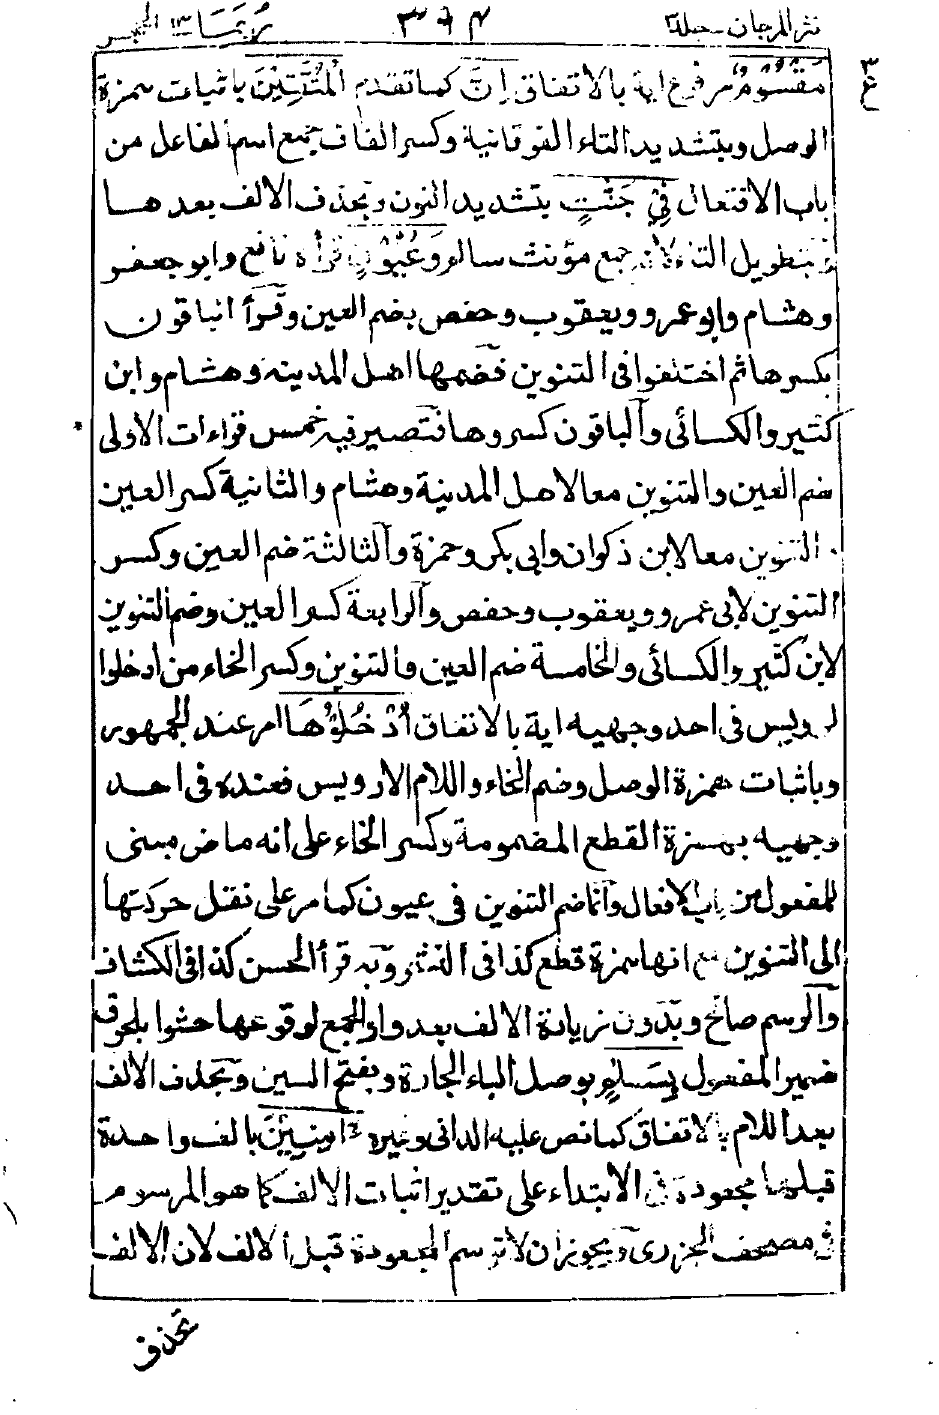 نثر المرجان - جلد ٣ ٣٦٤ رُبَمَا ١٣ الحجر
٣
ع
مَقْسُوْمٌ مرفوع اية بالاتفاق اِنَّ كما تقدم الْمُتَّقِيْنَ باثبات همزة
الوصل وبتشديد التاء الفوقانية وكسر القاف جمع اسم الفاعل من
باب الافتعال فِيْ جَنّٰتٍ بتشديد النون وبحذف الالف بعدها
وبتطويل التاء لانه جمع مؤنث سالم وَعُيُوْنٍ قرأه نافع وابو جعفر
وهشام وابو عمرو ويعقوب وحفص بضم العين وقرأ الباقون
بكسرها ثم اختلفوا فى التنوين فضمها اهل المدينه وهشام وابن
كثير والكسائى والباقون كسروها فتصير فيه خمس قراءات الاولى
ضم العين والتنوين معا لاهل المدينة وهشام والثانية كسر العين
والتنوين معا لابن ذكوان وابى بكر وحمزة والثالثة ضم العين وكسر
التنوين لابى عمرو ويعقوب وحفص والرابعة كسر العين وضم التنوين
لابن كثير والكسائى والخامسة ضم العين والتنوين وكسر الخاء من ادخلوا
لرويس فى احد وجهيه اية بالاتفاق اُدْخُلُوْهَا امر عند الجمهور
وباثبات همزة الوصل وضم الخاء واللام الا رويس فعنده فى احد
وجهيه بهمزة القطع المضمومة وكسر الخاء على انه ماض مبنى
للمفعول من باب الافعال وانما ضم التنوين فى عيون كما مر على نقل حركتها
الى التنوين مع انها همزة قطع كذا فى النشر وبه قرأ الحسن كذا فى الكشاف
والرسم صالح وبدون زيادة الالف بعد واو الجمع لوقوعها حشوا بلحوق
ضمير المفعول بِسَلٰمٍ بوصل الباء الجارة وبفتح السين وبحذف الالف
بعد اللام بالاتفاق كما نص عليه الدانى وغيره اٰمِنِيْنَ بالف واحدة
قبلها مجعودة فى الابتداء على تقدير اثبات الالف كما هو المرسوم
فى مصحف الجزرى ويجوز ان لا ترسم المجعودة قبل الالف لان الالف
تحذف